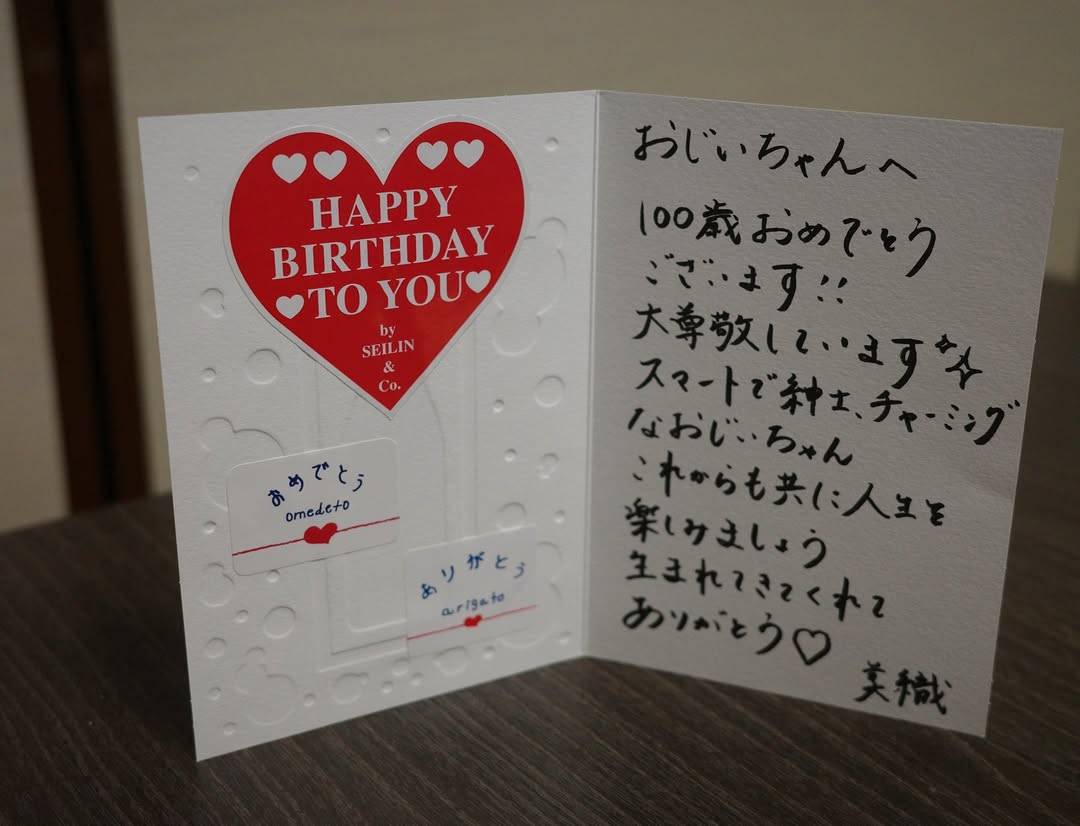 HAPPY
BIRTHDAY
TO YOU
by
SEILIN
&
Co.
おめでとう
omedeto
ありがとう
arigato
おじいちゃんへ
100歳おめでとう
ございます!!
大尊敬しています
スマートで紳士、チャーミング
なおじいちゃん
これからも共に人生を
楽しみましょう
生まれてきてくれて
ありがとう♡
美織